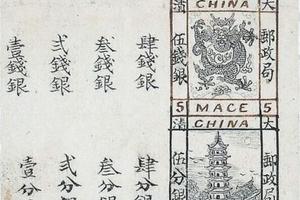 CHINA
大清郵政局
伍錢銀
5 MACE 5
肆錢銀
叁錢銀
弍錢銀
壹錢銀
CHINA
大清郵政局
伍分銀
肆分銀
叁分
弍分
壹分